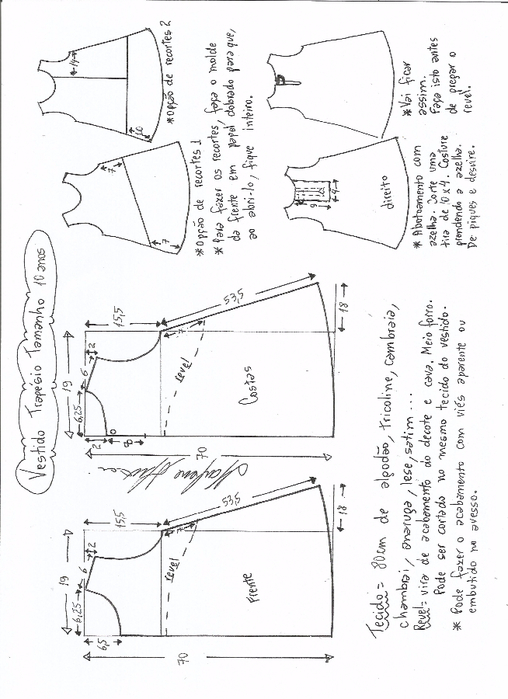 Vestido Trapézio Tamanho 10 anos
19
6,25
6
2
15,5
6,5
70
revel
7
53,5
18
Frente
19
6,25
6
2
15,5
2
8
70
revel
7
53,5
18
Costas
Tecido = 80cm de algodão, tricoline, cambraia,
chambrai, anaruga, lese, setim ...
Revel = vira de acabamento do decote e cava. Meio forro.
Pode ser cortado no mesmo tecido do vestido.
* Pode fazer o acabamento com viés aparente ou
embutido no avesso.
7
7
* Opção de recortes 1
14
10
* Opção de recortes 2
* Para fazer os recortes, faça o molde
da frente em papel dobrado para que,
ao abri-lo, fique inteiro.
direito
* Abotoamento com
azelha. Corte uma
tira de 10 x 4. Costure
prendendo a azelha.
De piques e desvire.
* Vai ficar
assim.
Faça isto antes
de pregar o
revel.